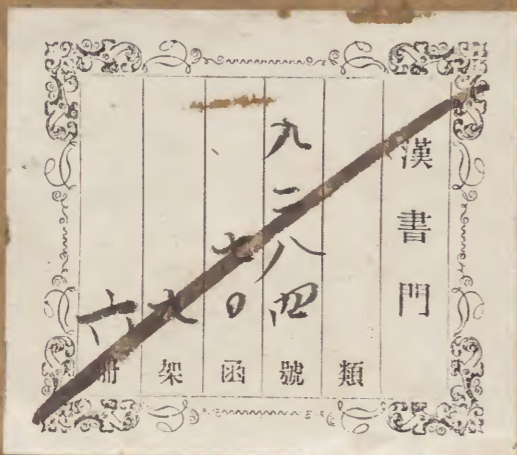 漢書門
類
九二八四號
七〇函
架
六冊